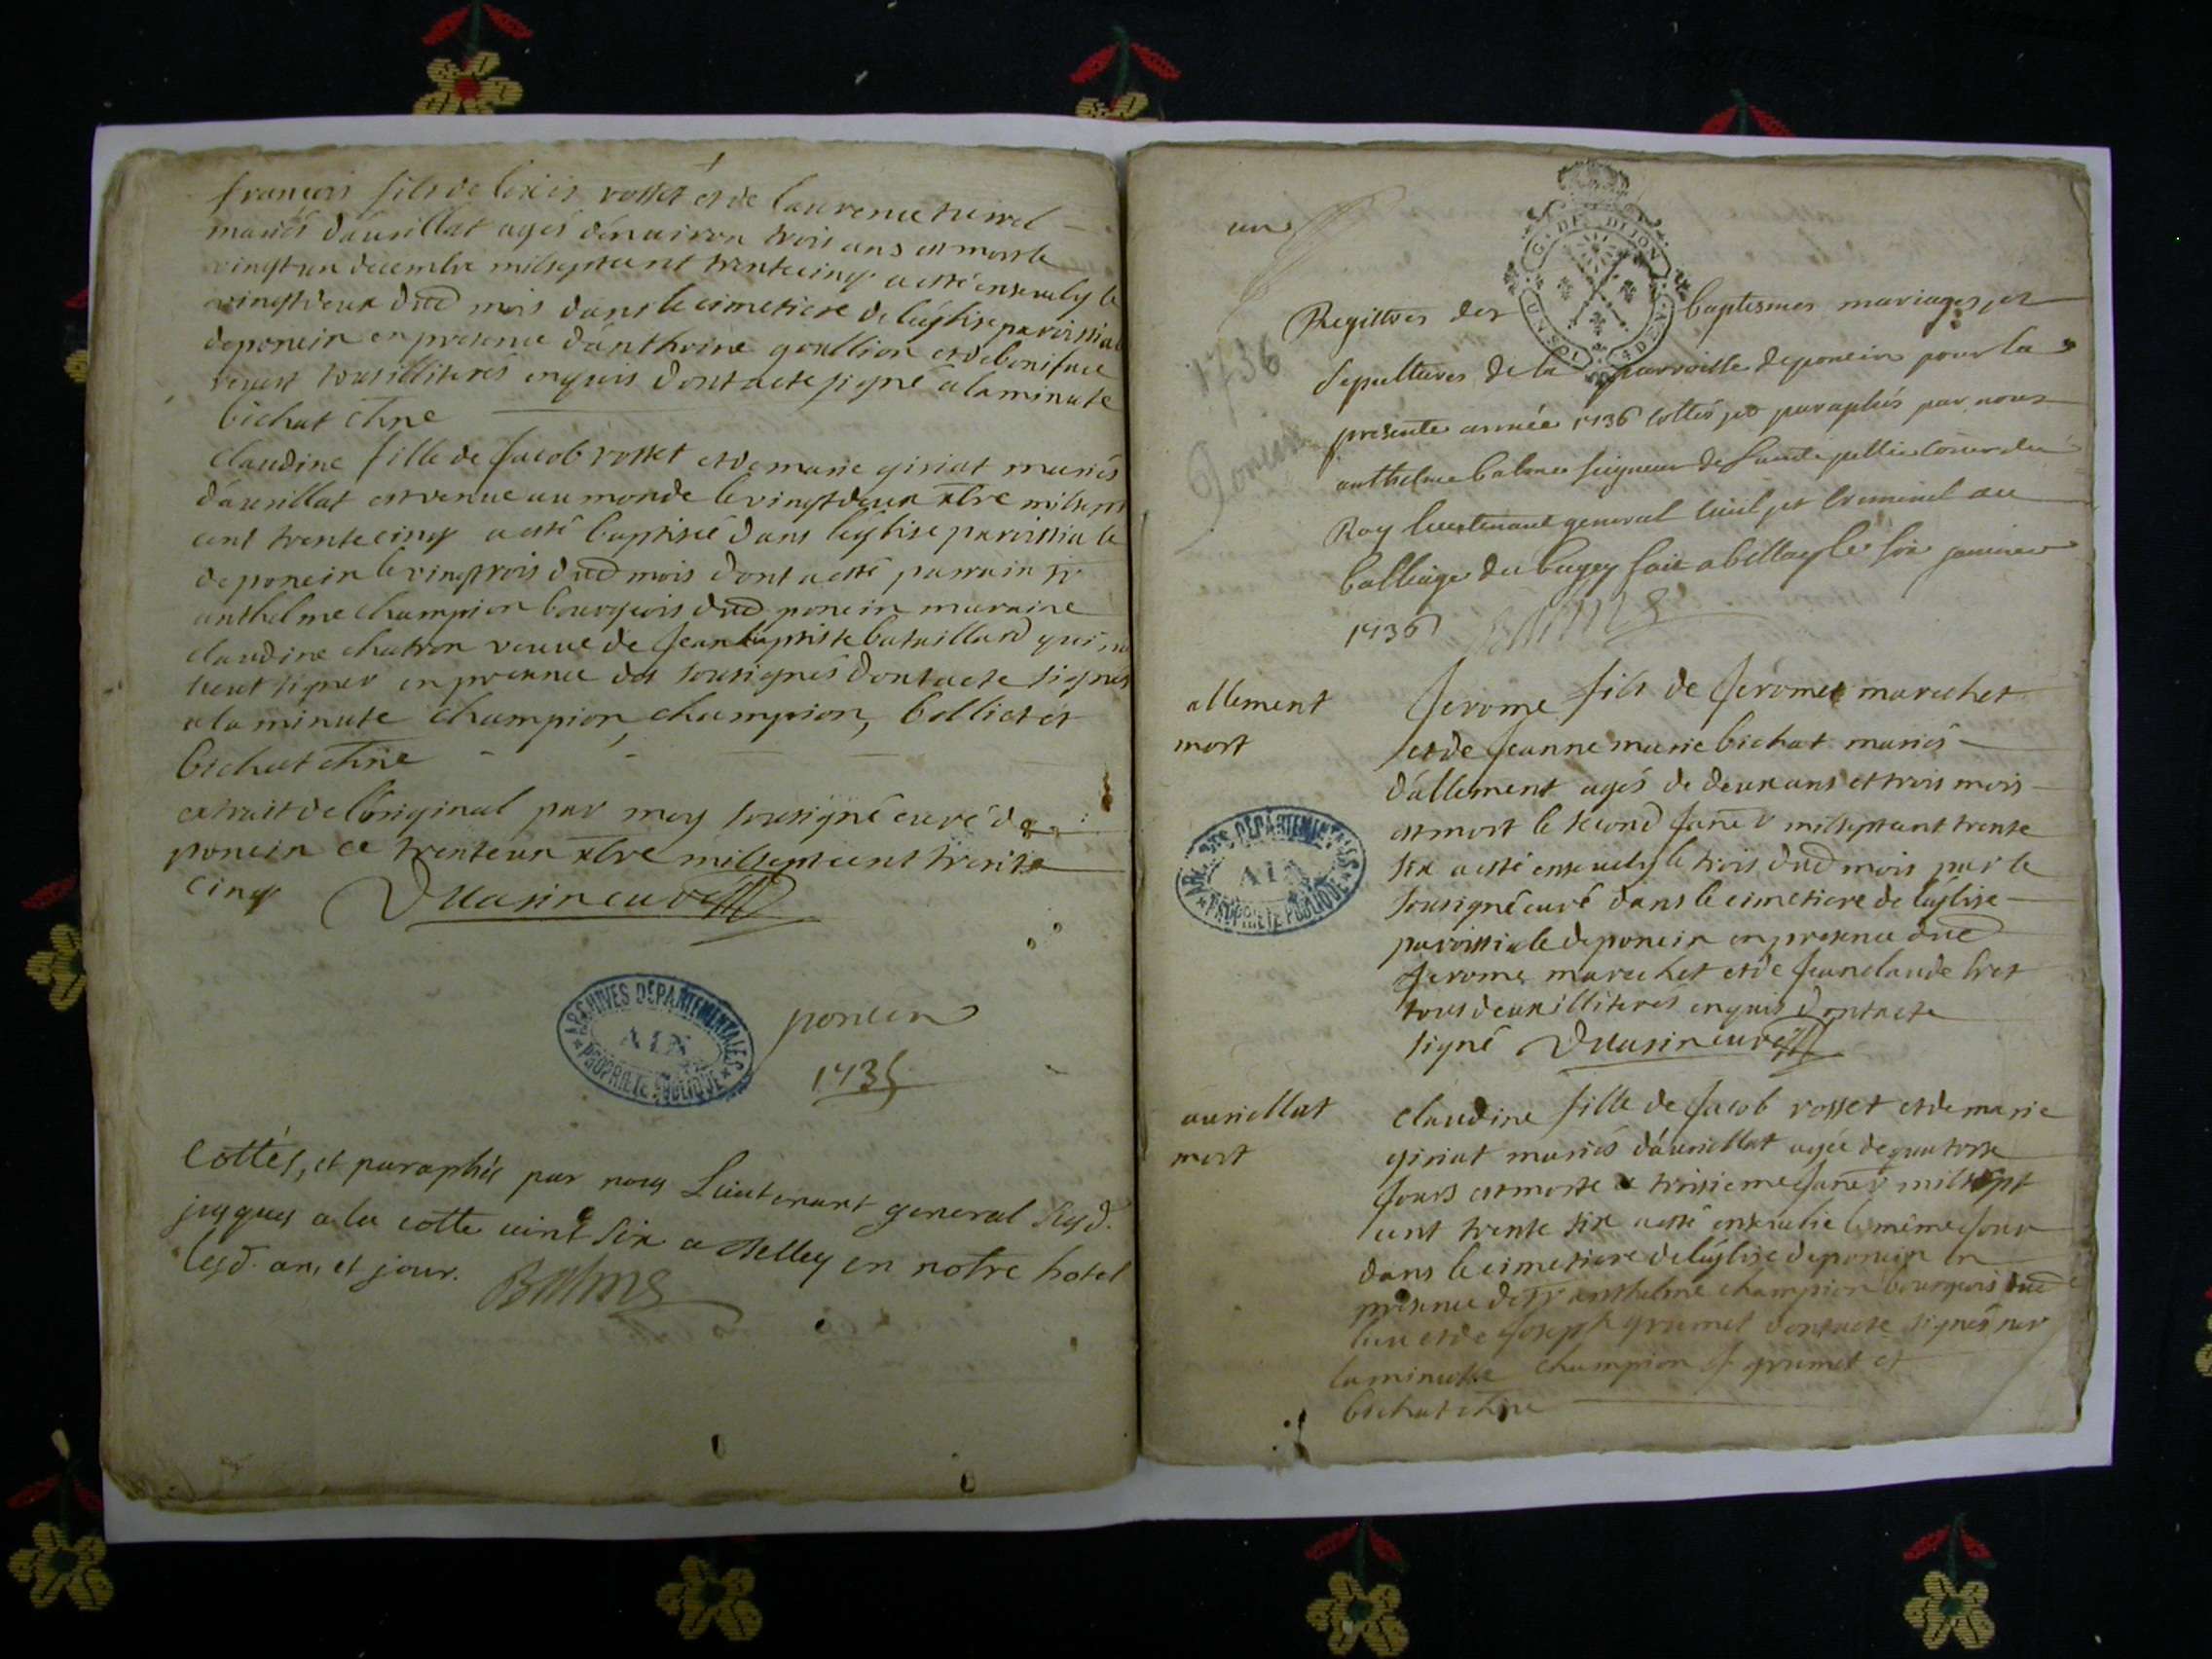 françois fils de
rosset et de laurence
mariés d'aurillat agés d'environ trois ans est mort le
vingt un decembre mil sept cent trente cinq a esté ensevely le
vingt deux dud mois dans le cimetiere de l'église paroissial
de poncin en presence d'anthoine goullion et de boniface
tous illiterés enquis dont acte signé a la minute
bichat
claudine fille de Jacob rosset et de marie giriat mariés
d'aurillat est venue au monde le vingt deux xbre mil sept
cent trente cinq a esté baptisée dans l'église paroissiale
de poncin le vingtrois dud mois dont a esté parrain sr
anthelme champion bourgeois dud poncin maraine
claudine chatron veuve de Jean baptiste bataillard qui
signer en presence des sousignés dont acte signés
a la minute champion, champion, bolliet et
bichat
extrait de l'original par moy sousigné curé de
poncin ce trente un xbre mil sept cent trente
cinq
ARCHIVES DEPARTEMENTALES
AIN
PROPRIETE PUBLIQUE
poncin
1735
Cottés, et paraphés par nous Lieutenant general susd.
jusques a la cotte vint six a Belley en notre hotel
lesd. an, et jour. Balme
un
G. DE DIJON
1736
Poncin
Registres des baptesmes mariages et
sepultures de la parroisse de poncin pour la
presente année 1736 cottés et paraphés par nous
anthelme balme seigneur de Sainte
Roy lieutenant general civil et criminel au
balliage du bugey fait a belley le six janvier
1736 Balme
allement
mort
Jerome fils de Jérome marechet
et de Jeanne marie bichat mariés
d'allement agés de deux ans et trois mois
est mort le second Janer mil sept cent trente
six a esté ensevely le trois dud mois par le
sousigné curé dans le cimetiere de l'église
paroissiale de poncin en presence dud
Jerome marechet et de Jean claude bret
tous deux illiterés enquis dont acte
signé
ARCHIVES DEPARTEMENTALES
AIN
PROPRIETE PUBLIQUE
aurillat
mort
claudine fille de Jacob rosset et de marie
giriat mariés d'aurillat agée de quatorse
Jours est morte le troisieme Janer mil sept
cent trente six a esté ensevelie le même Jour
dans le cimetiere de l'église de poncin en
presence de sr anthelme champion bourgeois dud
lieu et de Joseph grumet dont acte signés sur
la minutte champion J. grumet et
bichat